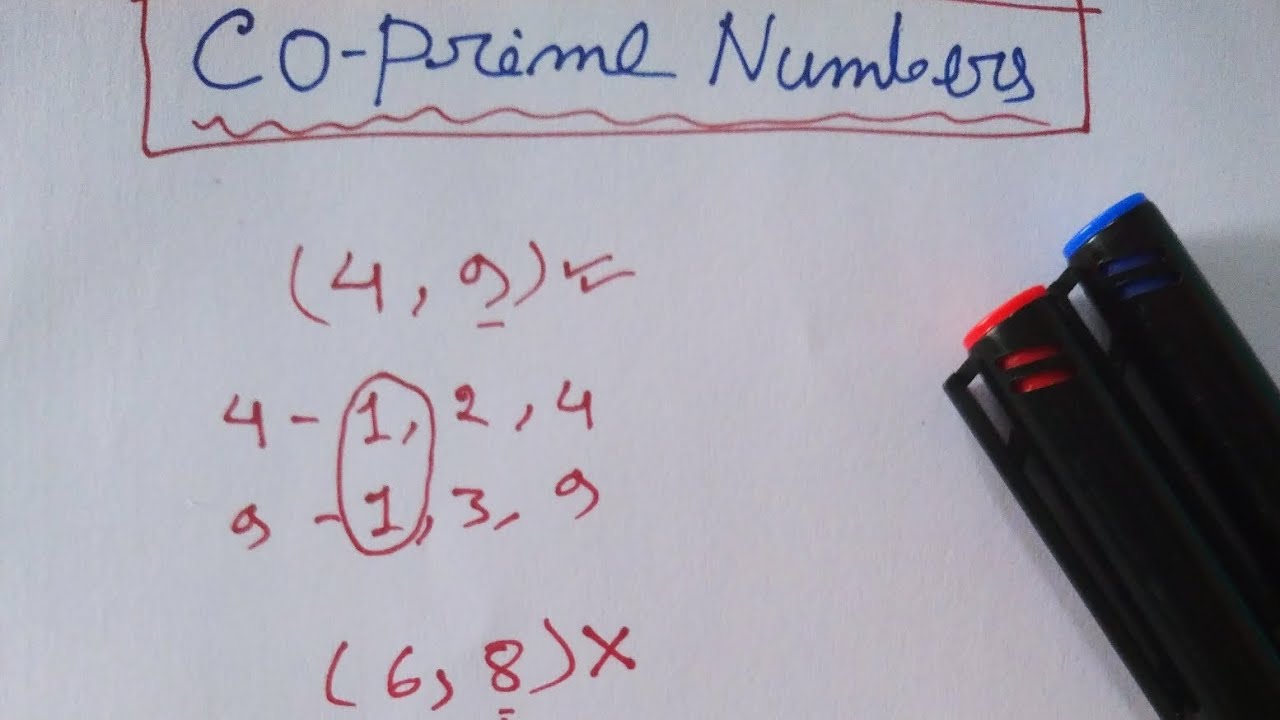 Co-Prime Numbers
(4, 9) ✓
4 - 1, 2, 4
9 - 1, 3, 9
(6, 8) X